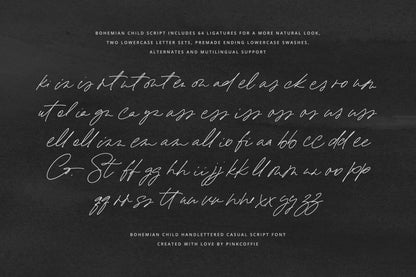 BOHEMIAN CHILD SCRIPT INCLUDES 64 LIGATURES FOR A MORE NATURAL LOOK,
TWO LOWERCASE LETTER SETS, PREMADE ENDING LOWERCASE SWASHES,
ALTERNATES AND MUTILINGUAL SUPPORT
ki in is rt ut ont er on ad el as ck es ro um
ut el io gn ca ga ass ess iss oss or us uss
ell oll inn enn am all io fi aa bb cc dd ee
G. St ff gg hh ii jj kk ll mm nn oo pp
qq rr ss tt uu vv ww xx yy zz
BOHEMIAN CHILD HANDLETTERED CASUAL SCRIPT FONT
CREATED WITH LOVE BY PINKCOFFIE